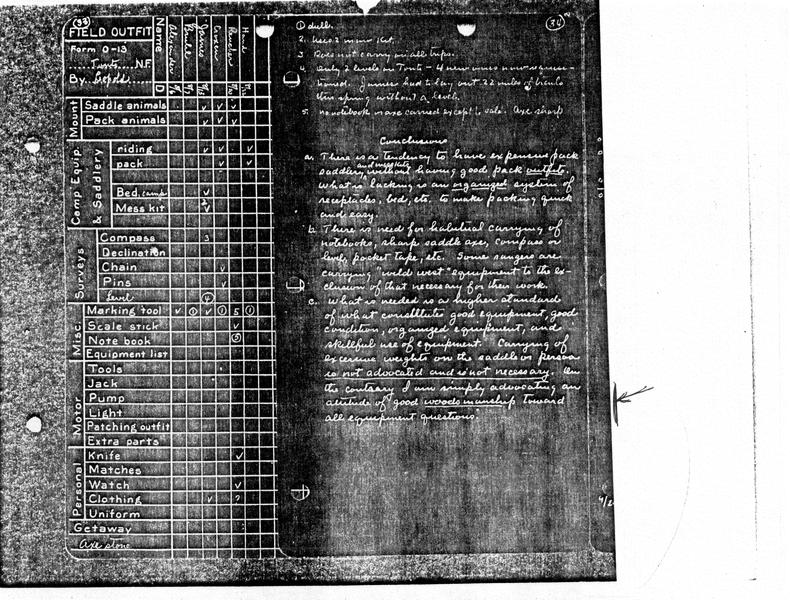 (33)
FIELD OUTFIT
Form O-13
Tonto N.F.
By Leopold
Name
Alexander
James
Croxen
Hand
D
Mount
Saddle animals
Pack animals
Camp Equip. & Saddlery
riding
pack
Bed, camp
Mess kit
Surveys
Compass 3
Declination
Chain
Pins
Level 4
Misc.
Marking tool 1 1 5 1
Scale stick
Note book 5
Equipment list
Motor
Tools
Jack
Pump
Light
Patching outfit
Extra parts
Personal
Knife
Matches
Watch
Clothing ?
Uniform
Getaway
Axe stone
(34)
1 dull.
2. Uses 2 man kit.
3. Does not carry on all trips.
4. Only 2 levels on Tonto - 4 new ones now requisi-
tioned. James had to lay out 22 miles of
this spring without a level.
5. no notebook or axe carried except to sale. Axe sharp
Conclusions
a. There is a tendency to have expensive pack
saddlery, and mess kits, without having good pack outfits.
What is lacking is an organized system of
receptacles, bed, etc. to make packing quick
and easy.
b. There is need for habitual carrying of
notebooks, sharp saddle axe, compass or
level, pocket tape, etc. Some rangers are
carrying "wild west" equipment to the ex-
clusion of that necessary for their work.
c. What is needed is a higher standard
of what constitutes good equipment, good
condition, organized equipment, and
skillful use of equipment. Carrying of
excessive weights on the saddle or person
is not advocated and is not necessary. On
the contrary I am simply advocating an
attitude of good woodsmanship toward
all equipment questions.